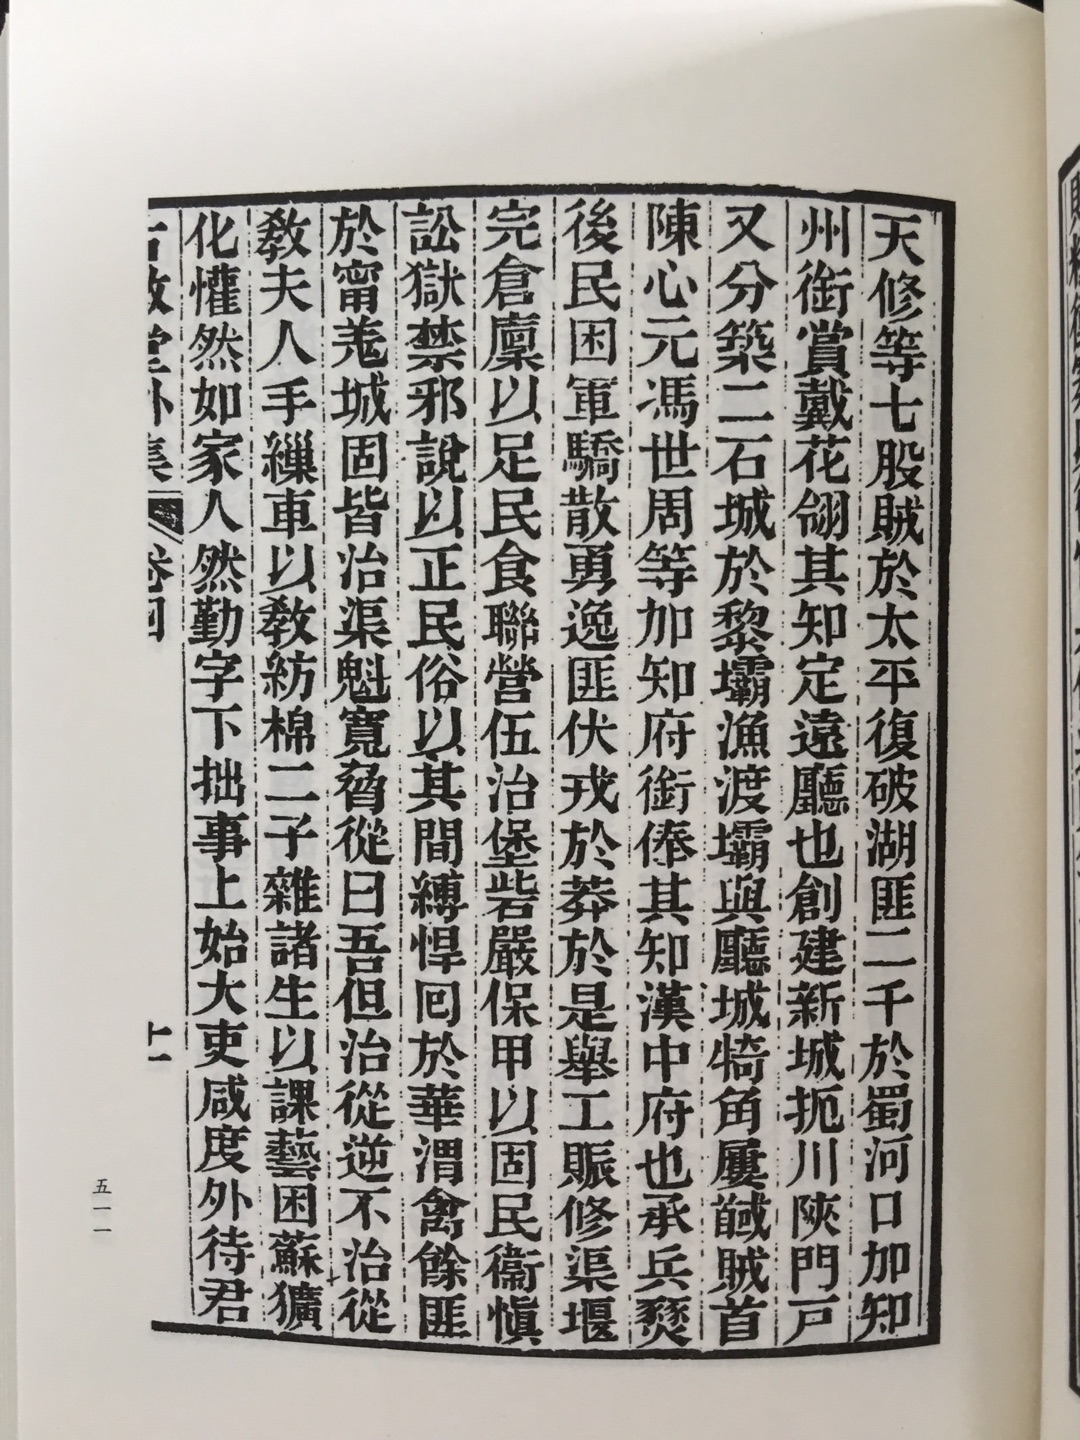 天修等七股賊於太平復破湖匪二千於蜀河口加知
州銜賞戴花翎其知定遠廳也創建新城扼川陝門戸
又分築二石城於黎壩漁渡壩與廳城犄角屢馘賊首
陳心元馮世周等加知府銜俸其知漢中府也承兵燹
後民困軍驕散勇逸匪伏戎於莽於是舉工賑修渠堰
完倉廩以足民食聯營伍治堡砦嚴保甲以固民衞愼
訟獄禁邪說以正民俗以其間縛悍囘於華渭禽餘匪
於甯羗城固皆治渠魁寬脅從曰吾但治從逆不治從
敎夫人手繅車以敎紡棉二子雜諸生以課藝困蘇獷
化懽然如家人然勤字下拙事上始大吏咸度外待君
古微堂外集 卷四
十一
五一一